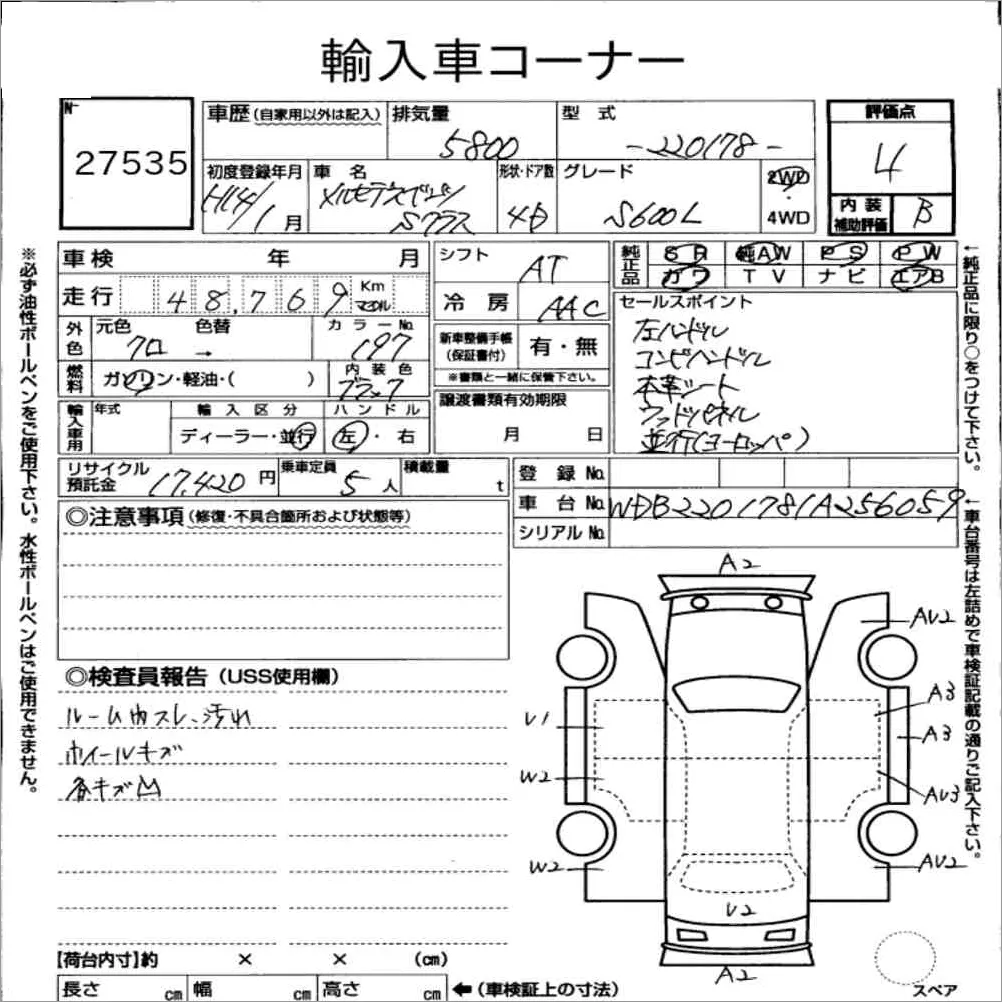 輸入車コーナー
No.
27535
車歴(自家用以外は記入)
排気量
5800
型 式
-220178-
評価点
4
初度登録年月
H14/1月
車 名
メルセデスベンツ
Sクラス
形状・ドア数
4D
グレード
S600L
2WD
4WD
内 装
補助評価
B
車検 年 月
走行 48,769 Km
マイル
シフト
AT
冷 房
AAC
純正品
SR 純AW PS PW
ガワ TV ナビ エアB
外色
元色 色替
クロ →
カラーNo.
197
燃料
ガソリン・軽油・( )
内 装 色
ブラック
新車整備手帳
(保証書付)
有・無
※書類と一緒に保管下さい。
セールスポイント
左ハンドル
コンビハンドル
本革シート
ウッドパネル
並行(ヨーロッパ)
輸入車用
年式
輸 入 区 分
ディーラー・並行
ハ ン ド ル
左・右
譲渡書類有効期限
月 日
リサイクル
預託金
17,420円
乗車定員
5人
積載量
t
登 録 No.
車 台 No. WDB2201781A256059
シリアル No.
◎注意事項(修復・不具合箇所および状態等)
◎検査員報告(USS使用欄)
ルーム内スレ、汚れ
ホイールキズ
各キズ凹
A2
AU2
A3
U1
A3
W2
AU3
W2
AU2
U2
A2
スペア
【荷台内寸】約 × × (cm)
長さ cm 幅 cm 高さ cm ←(車検証上の寸法)
※必ず油性ボールペンをご使用下さい。水性ボールペンはご使用できません。
←純正品に限り○をつけて下さい。
←車台番号は左詰めで車検証記載の通りご記入下さい。